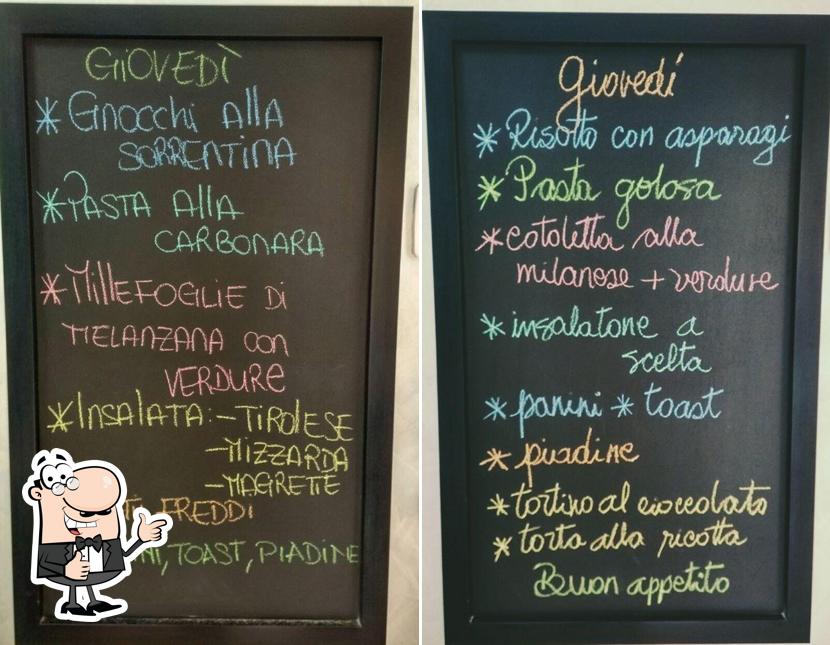 GIOVEDÌ
* Gnocchi Alla
SORRENTINA
* PASTA Alla
CARBONARA
* MillEFOGLIE Di
MELANZANA con
VERDURE
* INSALATA: - TIROLESE
- MIZZARDA
- MAGRETTE
FREDDI
TOAST, PIADINE
Giovedí
* Risotto con asparagi
* Pasta golosa
* cotoletta alla
milanese + verdure
* insalatone a
scelta
* panini * toast
* piadine
* tortino al cioccolato
* torta alla ricotta
Buon appetito